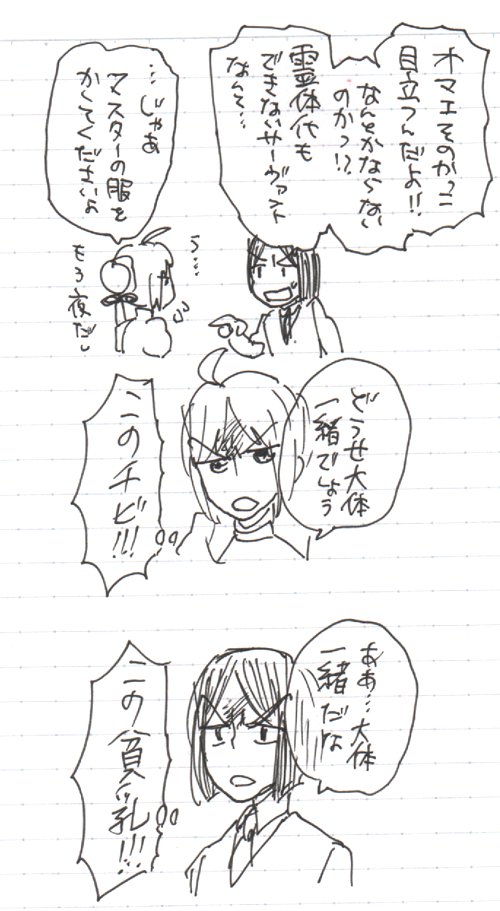 オマエそのかっこ
目立つんだよ!!
なんとかならない
のかっ!?
霊体化も
できないサーヴァント
なんて…
…じゃあ
マスターの服を
かしてくださいよ
う…
もう夜だし
どうせ大体
一緒でしょう
このチビ!!!
ああ…大体
一緒だな
この貧乳!!!